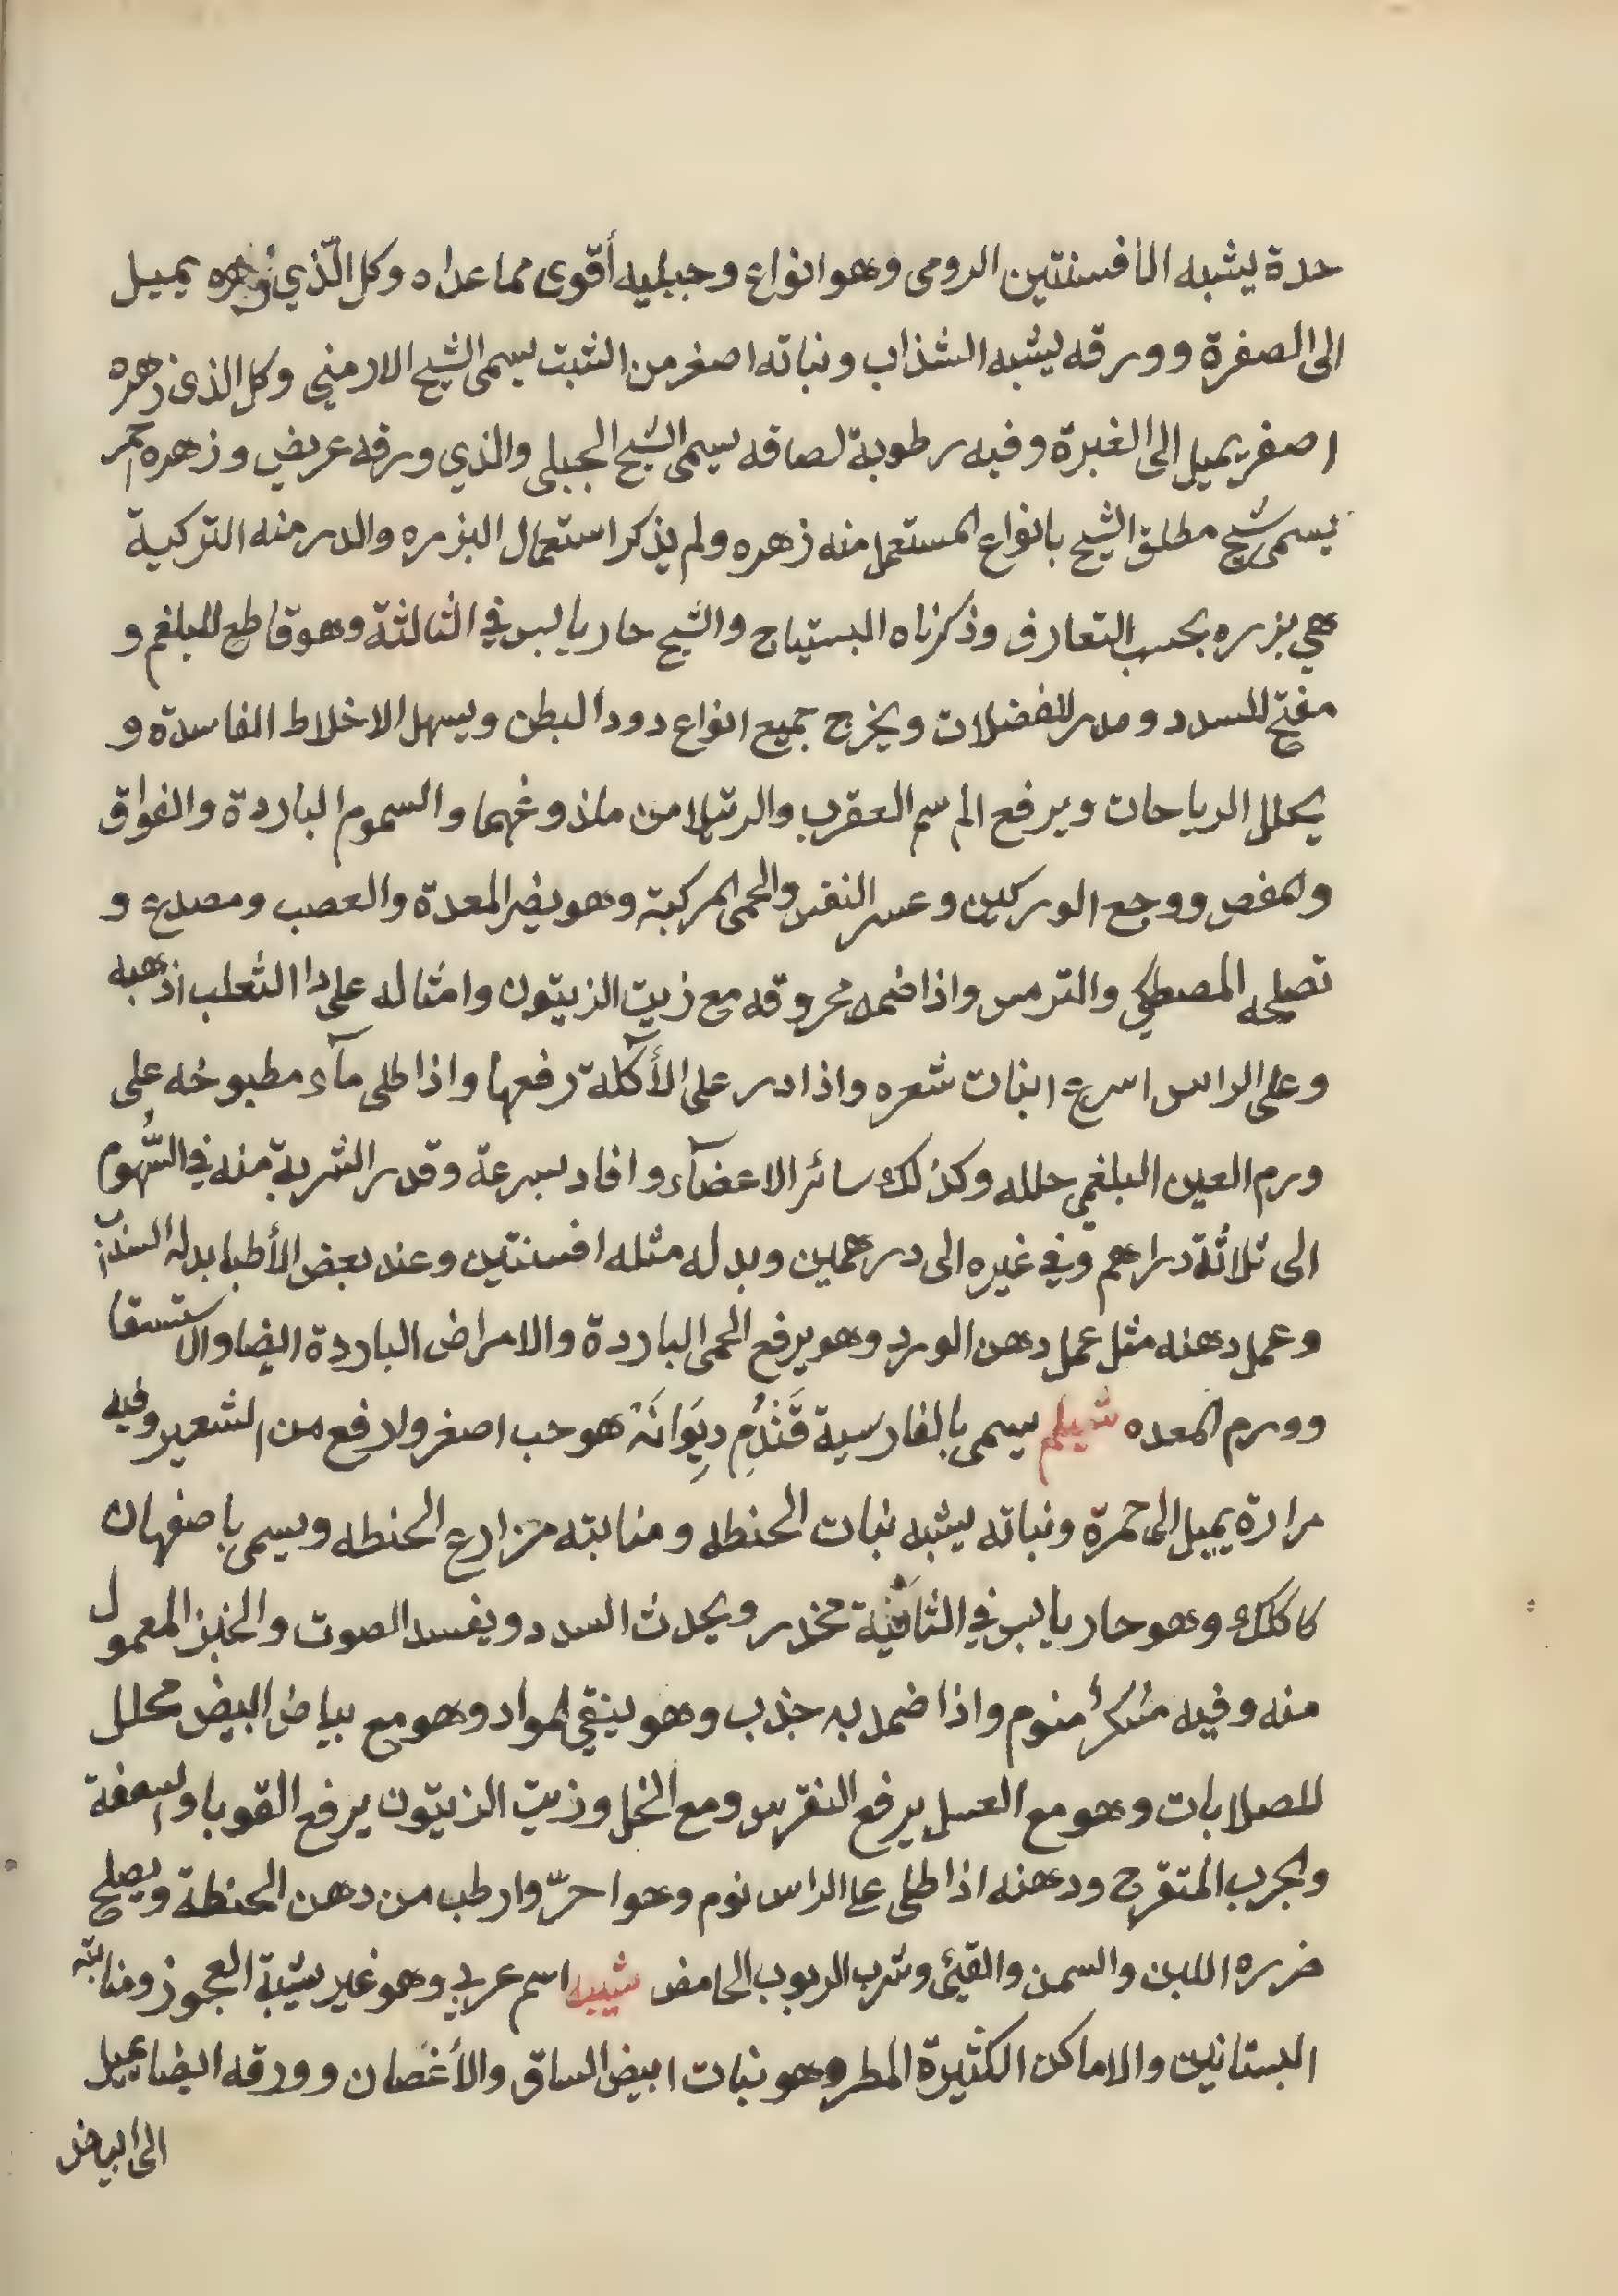 حدة يشبه الأفسنتين الرومى وهو انواع وجبليه أقوى مما عداه وكل الّذي زهره يميل
الى الصفرة وورقه يشبه الشذاب ونباته اصغر من الثبت يسمى الشيح الارمني وكل الذى زهره
اصفر يميل الى الغبرة وفيه رطوبة لصاقه يسمى الشيح الجبلى والذي ورقه عريض وزهره احمر
يسمى شيح مطلق الشيح بانواع المستعمل منه زهره ولم يذكر استعمال البزره والدرمنه التركية
هي بزره بحسب التعارف وذكرناه البستياج والشيح حار يابس في الثالثة وهو قاطع للبلغم و
مفتح للسدد ومدر للفضلات ويخرج جميع انواع دود البطن ويسهل الاخلاط الفاسدة و
يحلل الرياحات ويرفع الم سم العقرب والرتيلا من ملذوغهما والسموم الباردة والفواق
والمغص ووجع الوركين وعسر النفس والحمى المركبة وهو يضر المعدة والعصب ومصدع و
تصلحه المصطكى والترمس واذا ضمد محروقه مع زيت الزيتون وامثاله على دا الثعلب اذهبه
وعلى الراس اسرع انبات شعره واذا در على الأكلة رفعها واذا طلى مآء مطبوخه على
ورم العين البلغمي حلله وكذلك سائر الاعضآء وافاد بسرعة وقدر الشربة منه في السُّموم
الى ثلاثة دراهم وفي غيره الى درهمين وبدله مثله افسنتين وعند بعض الأطبا بدله السذاب
وعمل دهنه مثل عمل دهن الورد وهو يرفع الحمى الباردة والامراض الباردة ايضا والاستسقا
وورم المعده شيلم يسمى بالفارسية قَنْدُم دِيوَانَهْ هو حب اصغر وادفع من الشعير وفيه
مرارة يميل الى حمرة ونباته يشبه نبات الحنطه ومنابته مزارع الحنطه ويسمى باصفهان
كاكلك وهو حار يابس في الثانية مخدر ويحدث السدد ويفسد الصوت والخبز المعمول
منه وفيه مسكرٌ منوم واذا ضمد به جذب وهو ينقي المواد وهو مع بياض البيض محلل
للصلابات وهو مع العسل يرفع النقرس ومع الخل وزيت الزيتون يرفع القوبا والسعفة
والجرب المتقرح ودهنه اذا طلى على الراس نوم وهو احرّ وارطب من دهن الحنطة ويصلح
ضرره اللبن والسمن والقيئ وشرب الربوب الحامض شيبه اسم عربي وهو غير شيبة العجوز ومنابته
البستانين والاماكن الكثيرة المطر وهو نبات ابيض الساق والأغصان وورقه ايضا يميل
الى البياض